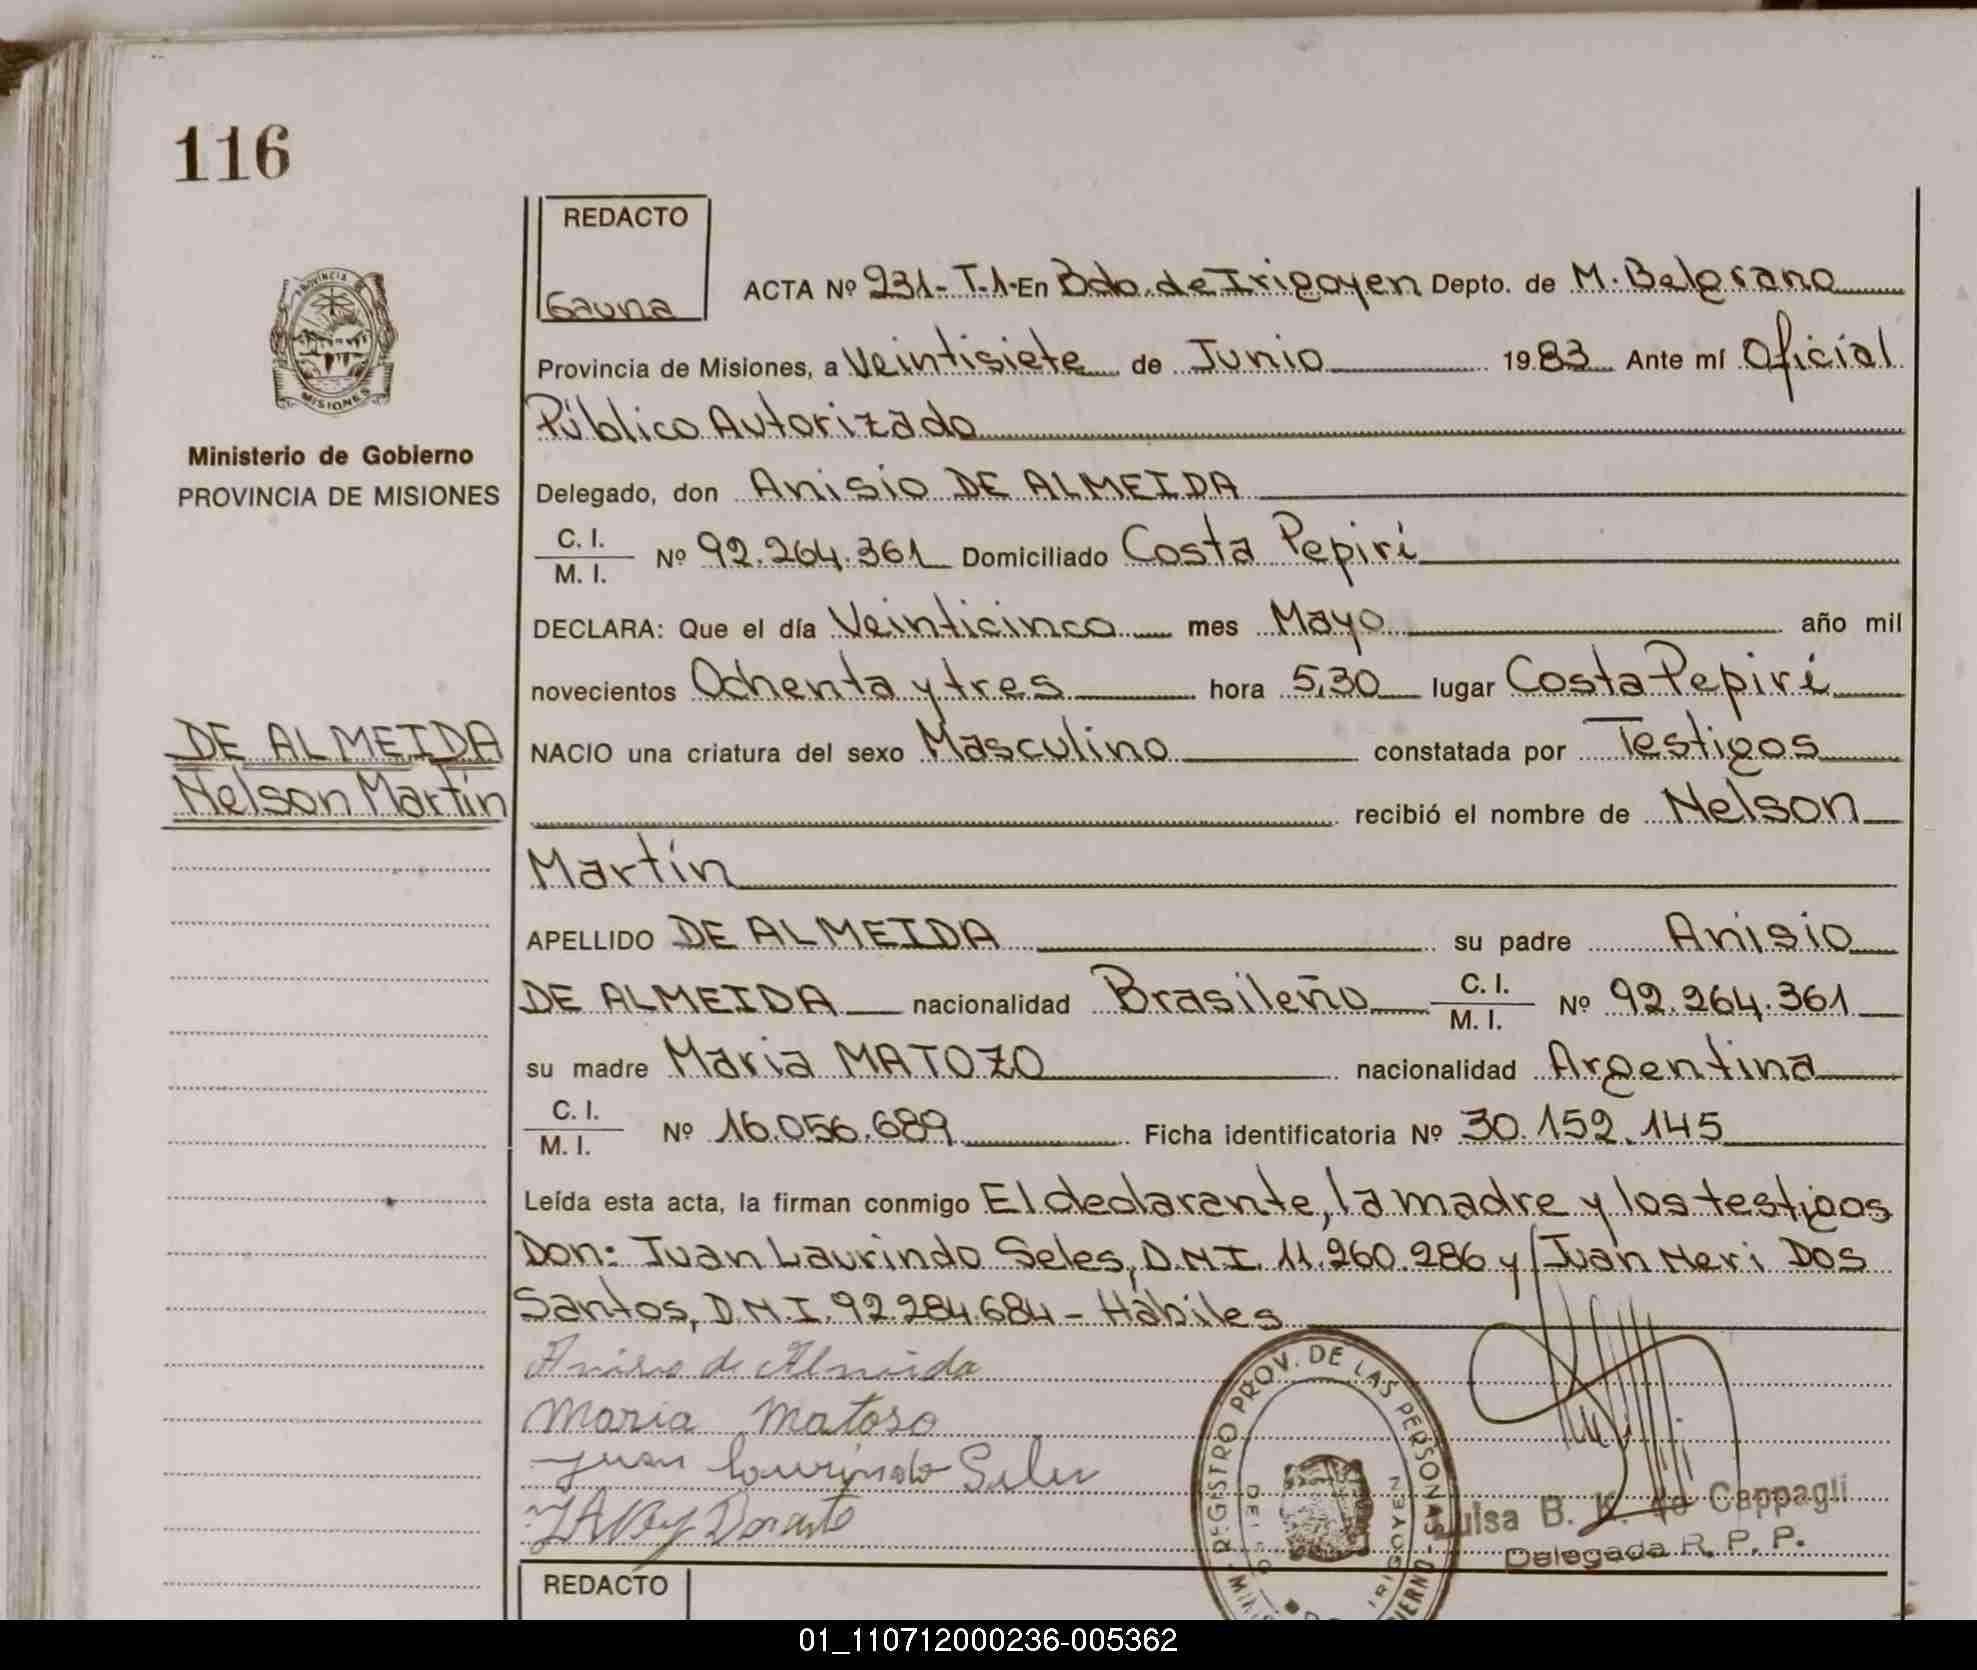 116
REDACTO
Gauna
ACTA Nº 231-T.1-En Bdo. de Irigoyen Depto. de M. Belgrano
Provincia de Misiones, a Veintisiete de Junio 1983 Ante mí Oficial
Público Autorizado
PROVINCIA
MISIONES
Ministerio de Gobierno
PROVINCIA DE MISIONES
Delegado, don Anisio DE ALMEIDA
C. I.
M. I. Nº 92.264.361 Domiciliado Costa Pepirí
DECLARA: Que el día Veinticinco mes Mayo año mil
novecientos Ochenta y tres hora 5,30 lugar Costa Pepirí
DE ALMEIDA
Nelson Martín
NACIO una criatura del sexo Masculino constatada por Testigos
recibió el nombre de Nelson
Martín
APELLIDO DE ALMEIDA su padre Anisio
DE ALMEIDA nacionalidad Brasileño C. I. M. I. Nº 92.264.361
su madre Maria MATOZO nacionalidad Argentina
C. I.
M. I. Nº 16.056.689 Ficha identificatoria Nº 30.152.145
Leída esta acta, la firman conmigo El declarante, la madre y los testigos
Don: Juan Laurindo Seles, D.N.I. 11.260.286 y Juan Neri Dos
Santos, D.N.I. 92.284.684 - Hábiles
Anisio de Almeida
Maria Matoso
Juan Laurindo Seles
REGISTRO PROV. DE LAS PERSONAS
IRIGOYEN
Luisa B. K. de Cappagli
Delegada R. P. P.
REDACTO
01_110712000236-005362